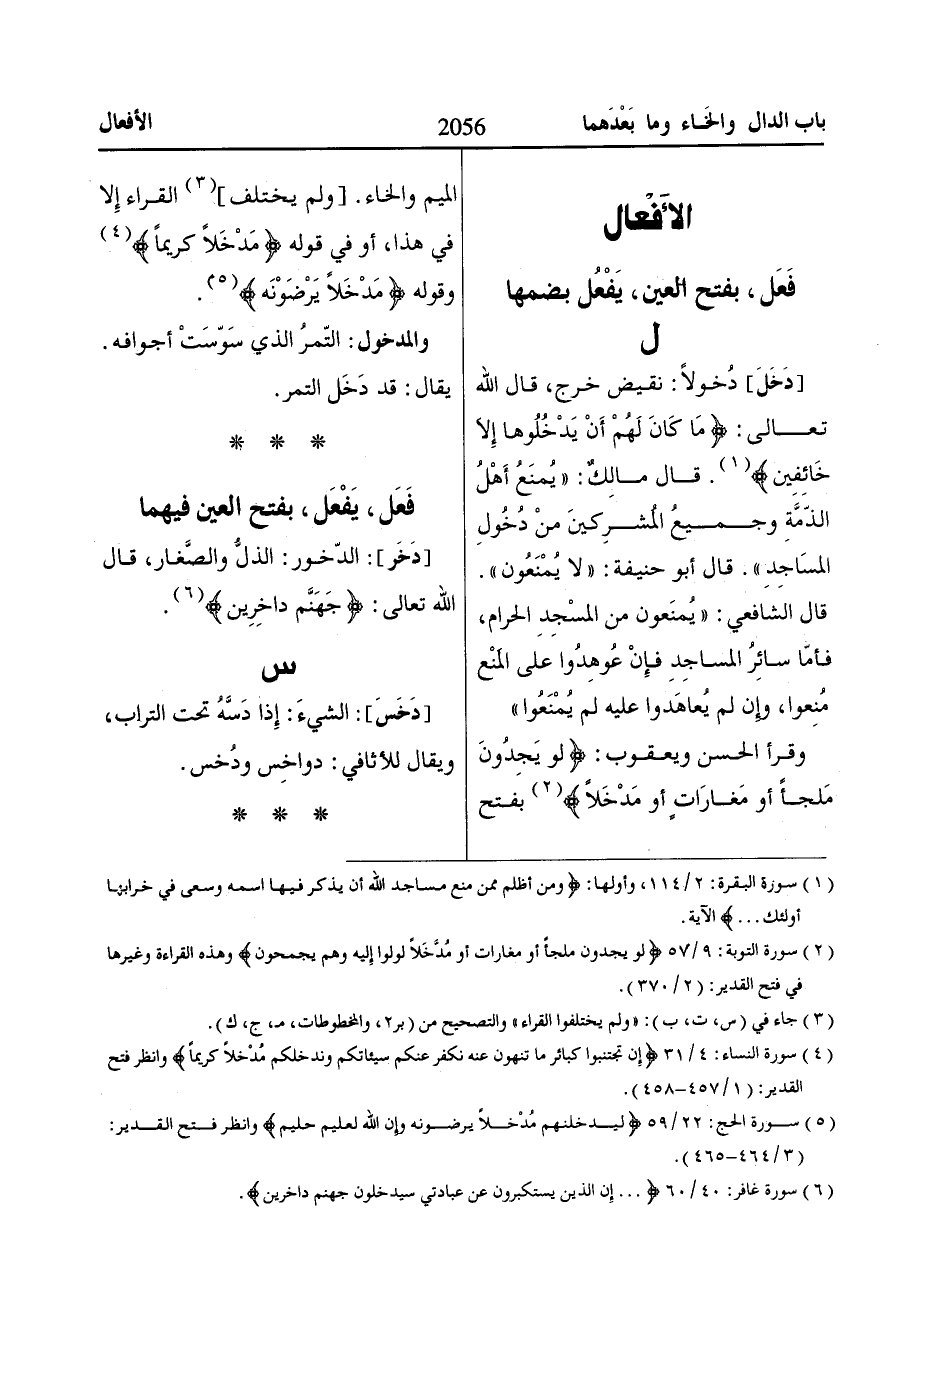 باب الدال والخاء وما بَعْدَهما
2056
الأفعال
الأَفْعال
فَعَل، بفتح العين، يَفْعُل بضمها
ل
[دَخَلَ] دُخولاً: نقيض خرج، قال الله
تعالى: ﴿ مَا كَانَ لَهُمْ أَنْ يَدْخُلُوها إلا
خَائِفِين ﴾(١). قال مالكٌ: «يُمنَعُ أَهْلُ
الذمَّة وجميعُ المُشركينَ منْ دُخُول
المسَاجد». قال أبو حنيفة: «لا يُمْنَعُون».
قال الشافعي: «يُمنَعون من المسْجد الحرام،
فأمّا سائرُ المساجد فإنْ عُوهدُوا على المَنْع
مُنِعوا، وإن لم يُعاهَدوا عليه لم يُمْنَعُوا»
وقرأ الحسن ويعقوب: ﴿ لو يَجِدُونَ
مَلجأً أو مَغارَاتٍ أو مَدْخَلاً ﴾(٢) بفتح
الميم والخاء. [ولم يختلف](٣) القراء إلا
في هذا، أو في قوله ﴿ مَدْخَلاً كريماً ﴾(٤)
وقوله ﴿ مَدْخَلاً يَرْضَوْنَه ﴾(٥).
والمدخول: التّمرُ الذي سَوّسَتْ أجوافه.
يقال: قد دَخَل التمر.
* * *
فَعَل، يَفْعَل، بفتح العين فيهما
[دَخَر]: الدّخور: الذلُّ والصَّغار، قال
الله تعالى: ﴿ جَهَنَّم داخرِين ﴾(٦).
س
[دَخَسَ]: الشيءَ: إذا دَسَّهُ تحت التراب،
ويقال للأثافي: دواخس ودُخس.
* * *
(١) سورة البقرة: ٢/ ١١٤، وأولها: ﴿ ومن أظلم ممن منع مساجد الله أن يذكر فيها اسمه وسعى في خرابها
أولئك... ﴾ الآية.
(٢) سورة التوبة: ٩/ ٥٧ ﴿ لو يجدون ملجأ أو مغارات أو مُدَّخَلاً لولوا إليه وهم يجمحون ﴾ وهذه القراءة وغيرها
في فتح القدير: (٢/ ٣٧٠).
(٣) جاء في (س، ت، ب): «ولم يختلفوا القراء» والتصحيح من (بر٢، والمخطوطات، م، ج، ك).
(٤) سورة النساء: ٤/ ٣١ ﴿ إن تجتنبوا كبائر ما تنهون عنه نكفر عنكم سيئاتكم وندخلكم مُدْخلاً كريماً ﴾ وانظر فتح
القدير: (١/ ٤٥٧-٤٥٨).
(٥) سورة الحج: ٢٢/ ٥٩ ﴿ ليدخلنهم مُدْخلاً يرضونه وإن الله لعليم حليم ﴾ وانظر فتح القدير:
(٣/ ٤٦٤-٤٦٥).
(٦) سورة غافر: ٤٠/ ٦٠ ﴿ ... إن الذين يستكبرون عن عبادتي سيدخلون جهنم داخرين ﴾.